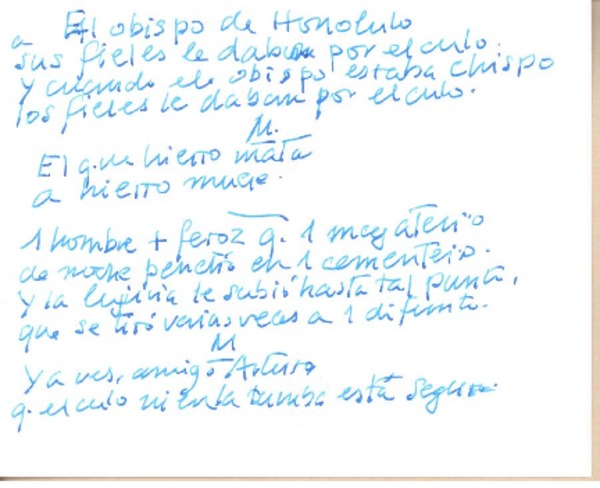 El obispo de Honolulo
a sus fieles le daban por el culo.
y cuando el obispo estaba chispo
los fieles le daban por el culo.
M.
El que hierro mata
a hierro muere.
1 hombre + feroz q. 1 megaterio
de noche penetró en 1 cementerio.
y la lujuria le subió hasta tal punto,
que se tiró varias veces a 1 difunta.
M
Ya ves, amigo Arturo
q. el culo ni en la tumba está seguro.